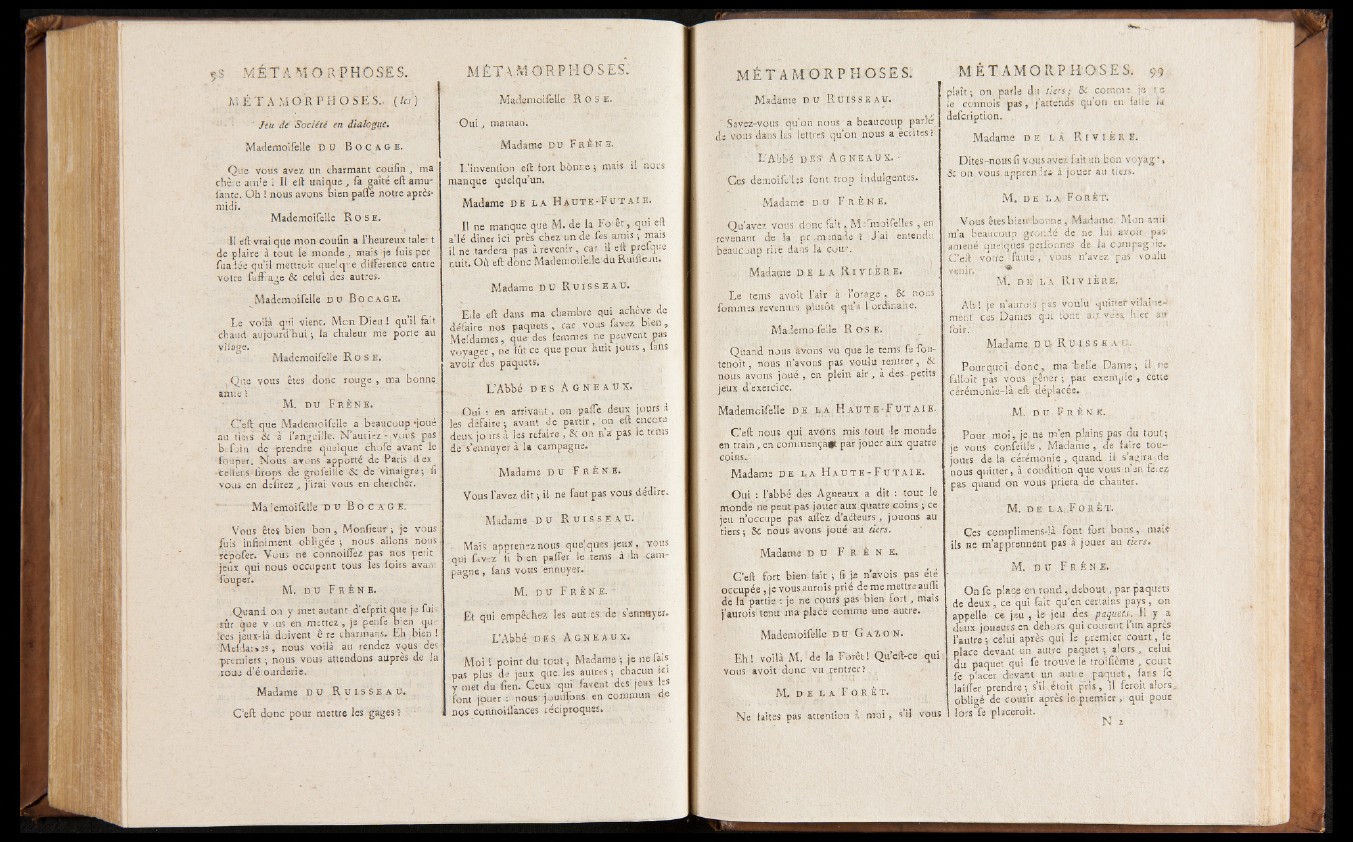 98 MÉTAMORPHOSES.
MÉTAMORPHOSES. (les)
Jeu de Société en dialogue.
Mademoiselle DU BOCAGE.
Que vous avez un charmant cousin, ma
chère amie ! Il est unique, sa gaîté est amu-
sante. Oh ! nous avons bien passé notre après-
midi.
Mademoiselle ROSE.
Il est vrai que mon cousin a l'heureux talent
de plaire à tout le monde, mais je suis per-
suadée qu'il mettroit quelque différence entre
votre suffrage & celui des autres.
Mademoiselle DU BOCAGE.
Le voilà qui vient. Mon Dieu ! qu'il fait
chaud aujourd'hui ; la chaleur me porte au
visage.
Mademoiselle ROSE.
Que vous êtes donc rouge, ma bonne
amie !
M. DU FRÊNE.
C'est que Mademoiselle a beaucoup joué
au tiers & à l'anguille. N'auriez-vous pas
besoin de prendre quelque chose avant le
souper. Nous avons apporté de Paris d'ex-
cellens sirops de groseille & de vinaigre ; si
vous en desirez, j'irai vous en chercher.
Mademoiselle DU BOCAGE.
Vous êtes bien bon, Monsieur ; je vous
suis infiniment obligée ; nous allons nous
reposer. Vous ne connoissez pas nos petits
jeux qui nous occupent tous les soirs avant
souper.
M. DU FRÊNE.
Quand on y met autant d'esprit que je suis
sûr que vous en mettez, je pense bien que
ces jeux-là doivent être charmans. Eh bien !
Mesdames, nous voilà au rendez vous des
premiers ; nous vous attendons auprès de la
roue d'étourderie.
Madame DU RUISSEAU.
C'est donc pour mettre les gages ?
MÉTAMORPHOSES.
Mademoiselle ROSE.
Oui, maman.
Madame DU FRÊNE.
L'invention est fort bonne ; mais il nous
manque quelqu'un.
Madame DE LA HAUTE-FUTAIE.
Il ne manque que M. de la Forêt, qui est
allé dîner ici près chez un de ses amis ; mais
il ne tardera pas à revenir, car il est presque
nuit. Où est donc Mademoiselle du Ruisseau.
Madame DU RUISSEAU.
Elle est dans ma chambre qui achève de
défaire nos paquets, car vous savez bien,
Mesdames, que des femmes ne peuvent pas
voyager, ne fût ce que pour huit jours, sans
avoir des paquets.
L'Abbé DES AGNEAUX.
Oui : en arrivant, on passe deux jours à
les défaire ; avant de partir, on est encore
deux jours à les refaire, & on n'a pas le tems
de s'ennuyer à la campagne.
Madame DU FRÊNE.
Vous l'avez dit ; il ne faut pas vous dédire.
Madame DU RUISSEAU.
Mais apprenez nous quelques jeux, vous
qui savez si bien passer le tems à la cam-
pagne, sans vous ennuyer.
M. DU FRÊNE.
Et qui empêchez les autres de s'ennuyer.
L'Abbé DES AGNEAUX.
Moi ! point du tout, Madame ; je ne sais
pas plus de jeux que les autres ; chacun ici
y met du sien. Ceux qui savent des jeux les
font jouer : nous jouissons en commun de
nos connoissances réciproques.
MÉTAMORPHOSES.
Madame DU RUISSEAU.
Savez-vous qu'on nous a beaucoup parlé
de vous dans les lettres qu'on nous a écrites ?
L'Abbé DES AGNEAUX.
Ces demoiselles sont trop indulgentes.
Madame DU FRÊNE.
Qu'avez vous donc fait, Mesmoiselles, en
revenant de la promenade ? J'ai entendu
beaucoup rire dans la cour.
Madame DE LA RIVIÈRE.
Le tems avoit l'air à l'orage, & nous
sommes revenues plutôt qu'à l'ordinaire.
Mademoiselle ROSE.
Quand nous avons vu que le tems se sou-
tenoit, nous n'avons pas voulu rentrer, &
nous avons joué, en plein air, à des petits
jeux d'exercice.
Mademoiselle DE LA HAUTE-FUTAIE.
C'est nous qui avons mis tout le monde
en train, en commençant par jouer aux quatre
coins.
Madame DE LA HAUTE-FUTAIE.
Oui : l'abbé des Agneaux a dit : tout le
monde ne peut pas jouer aux quatre coins ; ce
jeu n'occupe pas assez d'acteurs, jouons au
tiers ; & nous avons joué au tiers.
Madame DU FRÊNE.
C'est fort bien fait ; si je n'avois pas été
occupée, je vous aurois prié de me mettre aussi
de la partie : je ne cours pas bien fort, mais
j'aurois tenu ma place comme une autre.
Mademoiselle DU GAZON.
Eh ! voilà M. de la Forêt ! Qu'est-ce qui
vous avoit donc vu rentrer ?
M. DE LA FORÊT.
Ne faites pas attention à moi, s'il vous
MÉTAMORPHOSES. 99
plaît ; on parle du tiers ; & comme je ne
le connois pas, j'attends qu'on en fasse la
description.
Madame DE LA RIVIÈRE.
Dites-nous si vous avez fait un bon voyage,
& on vous apprendra à jouer au tiers.
M. DE LA FORÊT.
Vous êtes bien bonne, Madame. Mon ami
m'a beaucoup grondé de ne lui avoir pas
amené quelques personnes de la compagnie.
C'est votre faute, vous n'avez pas voulu
venir.
M. DE LA RIVIÈRE.
Ah ! je n'aurois pas voulu quitter vilaine-
ment ces Dames qui sont arrivées hier au
soir.
Madame DU RUISSEAU.
Pourquoi donc, ma belle Dame ; il ne
falloit pas vous gêner ; par exemple, cette
cérémonie-là est déplacée.
M. DU FRÊNE.
Pour moi, je ne m'en plains pas du tout ;
je vous conseille, Madame, de faire tou-
jours de la cérémonie, quand il s'agira de
nous quitter, à condition que vous n'en ferez
pas quand on vous priera de chanter.
M. DE LA FORÊT.
Ces complimens-là sont fort bons, mais
ils ne m'apprennent pas à jouer au tiers.
M. DU FRÊNE.
On se place en rond, debout, par paquets
de deux, ce qui fait qu'en certains pays, on
appelle ce jeu, le jeu des paquets. Il y a
deux joueurs en dehors qui courent l'un après
l'autre ; celui après qui le premier court, se
place devant un autre paquet ; alors, celui
du paquet qui se trouve le troisième, court
se placer devant un autre paquet, sans se
laisser prendre ; s'il étoit pris, il seroit alors
obligé de courir après le premier, qui pour
lors se placeroit.
N 2